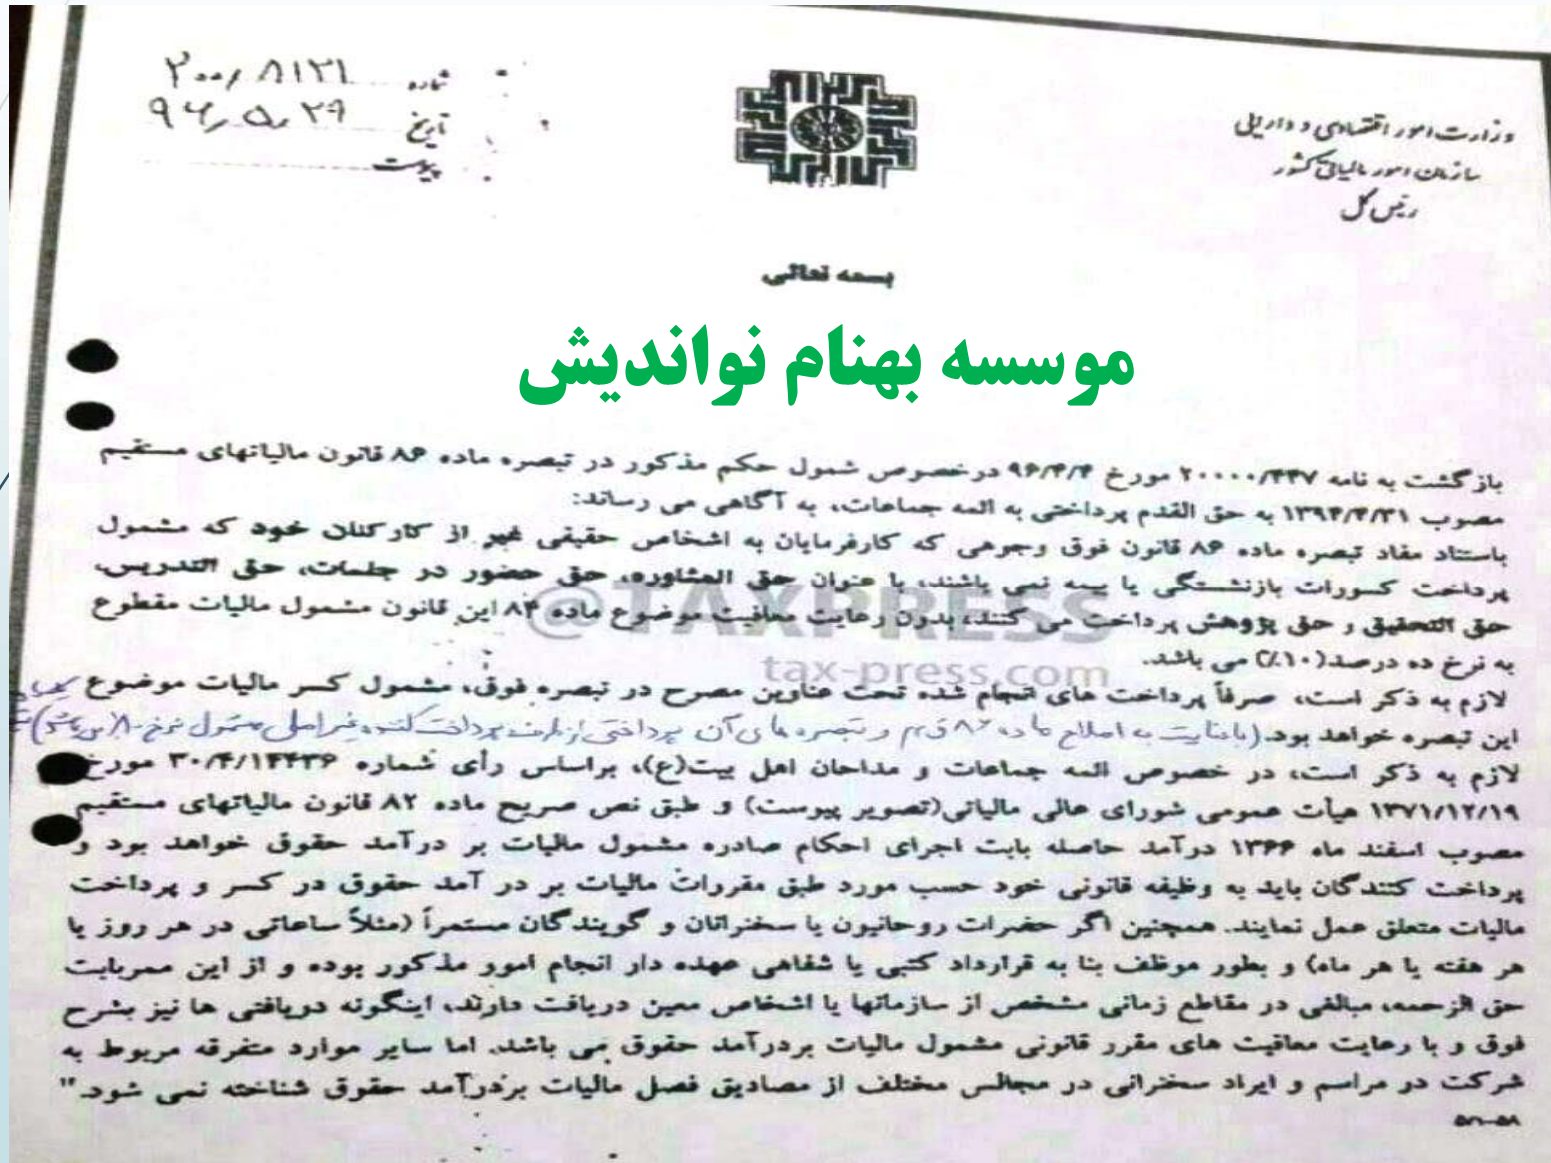 وزارت امور اقتصادی و دارایی
سازمان امور مالیاتی کشور
رئیس کل
شماره ۲۰۰/۸۱۲۱
تاریخ ۹۶/۵/۲۹
پیوست
بسمه تعالی
موسسه بهنام نواندیش
بازگشت به نامه ۲۰۰۰۰/۴۴۷ مورخ ۹۶/۴/۴ درخصوص شمول حکم مذکور در تبصره ماده ۸۶ قانون مالیاتهای مستقیم
مصوب ۱۳۹۴/۴/۳۱ به حق القدم پرداختی به ائمه جماعات، به آگاهی می رساند:
باستناد مفاد تبصره ماده ۸۶ قانون فوق وجوهی که کارفرمایان به اشخاص حقیقی غیر از کارکنان خود که مشمول
پرداخت کسورات بازنشستگی یا بیمه نمی باشند، با عنوان حق المشاوره، حق حضور در جلسات، حق التدریس،
حق التحقیق و حق پژوهش پرداخت می کنند، بدون رعایت معافیت موضوع ماده ۸۴ این قانون مشمول مالیات مقطوع
به نرخ ده درصد(۱۰٪) می باشد.
@TAXPRESS
tax-press.com
لازم به ذکر است، صرفاً پرداخت های انجام شده تحت عناوین مصرح در تبصره فوق، مشمول کسر مالیات موضوع
این تبصره خواهد بود. (باعنایت به اصلاح ماده ۸۶ ق.م و تبصره های آن پرداختی از طرف پرداخت کننده غیر اصلی مشمول نرخ
لازم به ذکر است، در خصوص ائمه جماعات و مداحان اهل بیت(ع)، براساس رأی شماره ۳۰/۴/۱۴۴۳۶ مورخ
۱۳۷۱/۱۲/۱۹ هیأت عمومی شورای عالی مالیاتی(تصویر پیوست) و طبق نص صریح ماده ۸۲ قانون مالیاتهای مستقیم
مصوب اسفند ماه ۱۳۶۶ درآمد حاصله بابت اجرای احکام صادره مشمول مالیات بر درآمد حقوق خواهد بود و
پرداخت کنندگان باید به وظیفه قانونی خود حسب مورد طبق مقررات مالیات بر در آمد حقوق در کسر و پرداخت
مالیات متعلق عمل نمایند. همچنین اگر حضرات روحانیون یا سخنرانان و گویندگان مستمراً (مثلاً ساعاتی در هر روز یا
هر هفته یا هر ماه) و بطور موظف بنا به قرارداد کتبی یا شفاهی عهده دار انجام امور مذکور بوده و از این ممربابت
حق الزحمه، مبالغی در مقاطع زمانی مشخص از سازمانها یا اشخاص معین دریافت دارند، اینگونه دریافتی ها نیز بشرح
فوق و با رعایت معافیت های مقرر قانونی مشمول مالیات بردرآمد حقوق می باشد. اما سایر موارد متفرقه مربوط به
شرکت در مراسم و ایراد سخنرانی در مجالس مختلف از مصادیق فصل مالیات بردرآمد حقوق شناخته نمی شود."